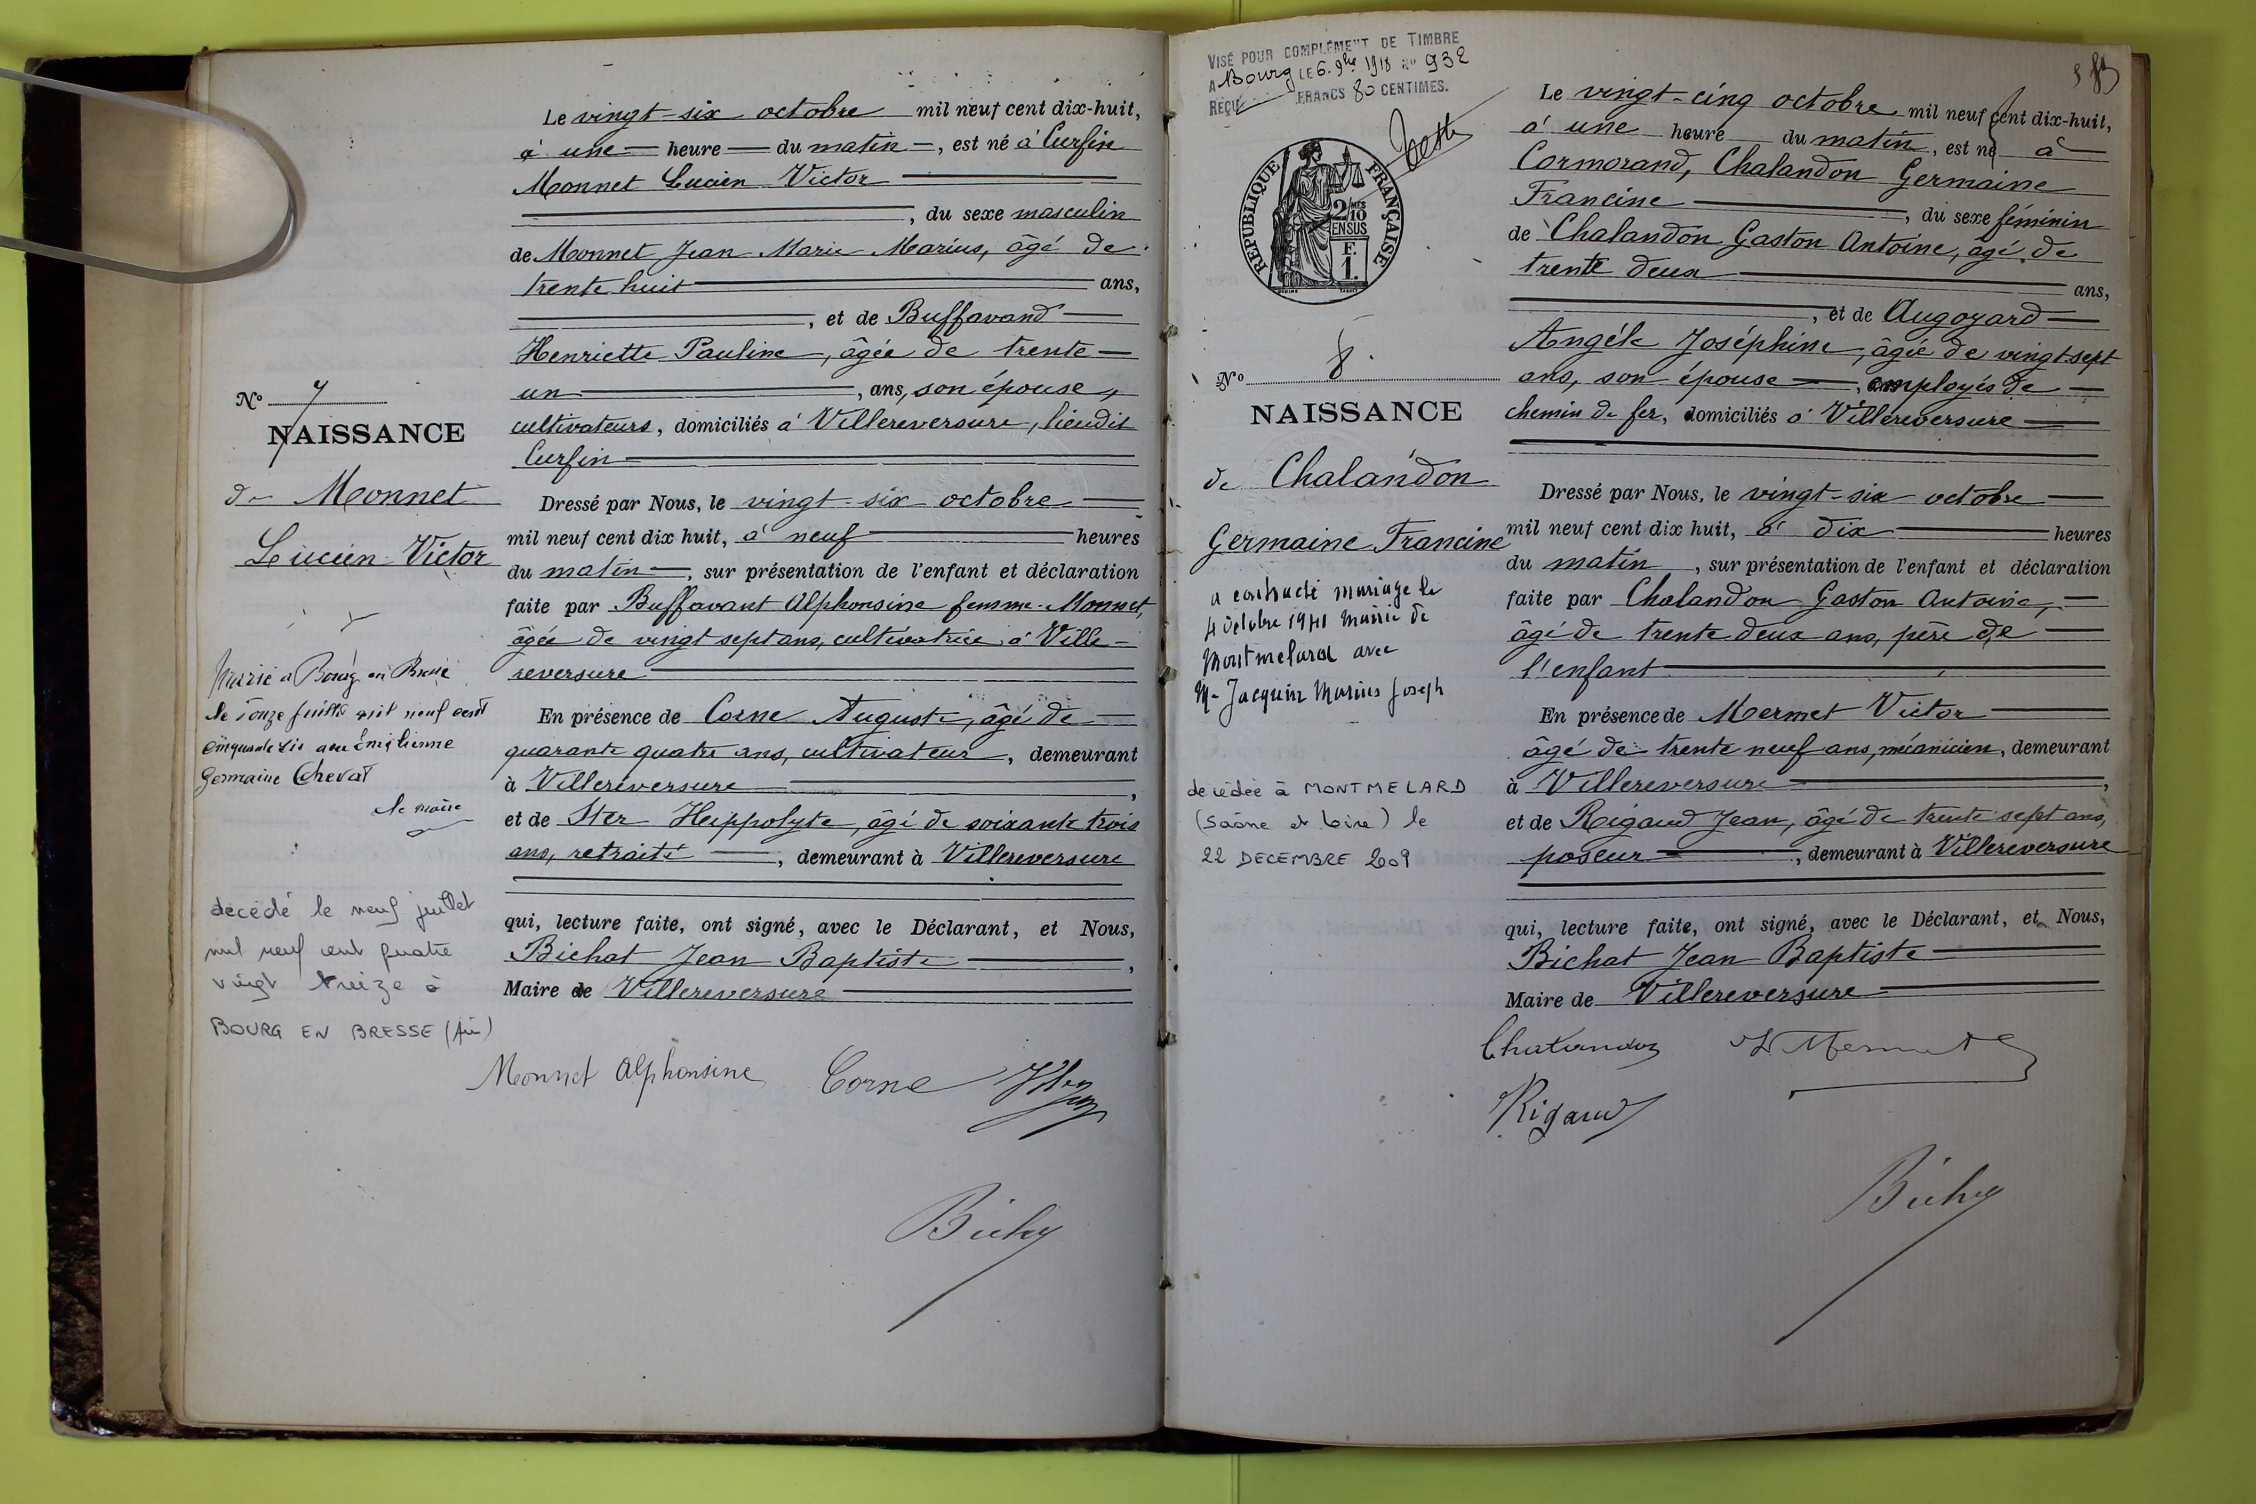 Le vingt-six octobre mil neuf cent dix-huit,
à une heure du matin, est né à Curfin
Monnet Lucien Victor
, du sexe masculin
de Monnet Jean Marie Marius, âgé de
trente huit ans,
, et de Buffavand
Henriette Pauline, âgée de trente
un, ans, son épouse,
cultivateurs, domiciliés à Villereversure, lieudit
Curfin
Dressé par Nous, le vingt-six octobre
mil neuf cent dix huit, à neuf heures
du matin, sur présentation de l'enfant et déclaration
faite par Buffavant Alphonsine femme Monnet,
âgée de vingt sept ans, cultivatrice à Ville-
reversure
En présence de Corne Auguste, âgé de
quarante quatre ans, cultivateur, demeurant
à Villereversure,
et de Ster Hippolyte, âgé de soixante trois
ans, retraité, demeurant à Villereversure
qui, lecture faite, ont signé, avec le Déclarant, et Nous,
Bichat Jean Baptiste,
Maire de Villereversure
Monnet Alphonsine Corne
N° 7
NAISSANCE
de Monnet
Lucien Victor
Marié à Bourg en Bresse
le onze juillet mil neuf cent
cinquante six avec Emilienne
Germaine Chevat
le maire
décédé le neuf juillet
mil neuf cent quatre
vingt treize à
BOURG EN BRESSE (Ain)
VISÉ POUR COMPLÉMENT DE TIMBRE
A Bourg LE 6 9bre 1918 N° 932
REÇU FRANCS 80 CENTIMES.
RÉPUBLIQUE FRANÇAISE
2/10
EN SUS
F.
1.
N° 8.
NAISSANCE
de Chalandon
Germaine Francine
a contracté mariage le
4 octobre 1941 Mairie de
Montmelard avec
M. Jacquin Marius Joseph
décédée à MONTMELARD
(Saône et Loire) le
22 DECEMBRE 2009
Le vingt-cinq octobre mil neuf cent dix-huit,
à une heure du matin, est né à
Cormorand, Chalandon Germaine
Francine, du sexe féminin
de Chalandon Gaston Antoine, âgé de
trente deux ans,
, et de Augoyard
Angèle Joséphine, âgée de vingt sept
ans, son épouse, employés de
chemin de fer, domiciliés à Villereversure
Dressé par Nous, le vingt-six octobre
mil neuf cent dix huit, à dix heures
du matin, sur présentation de l'enfant et déclaration
faite par Chalandon Gaston Antoine,
âgé de trente deux ans, père de
l'enfant
En présence de Mermet Victor
âgé de trente neuf ans, mécanicien, demeurant
à Villereversure,
et de Rigaud Jean, âgé de trente sept ans,
poseur, demeurant à Villereversure
qui, lecture faite, ont signé, avec le Déclarant, et Nous,
Bichat Jean Baptiste
Maire de Villereversure
Chalandon Mermet
Rigaud